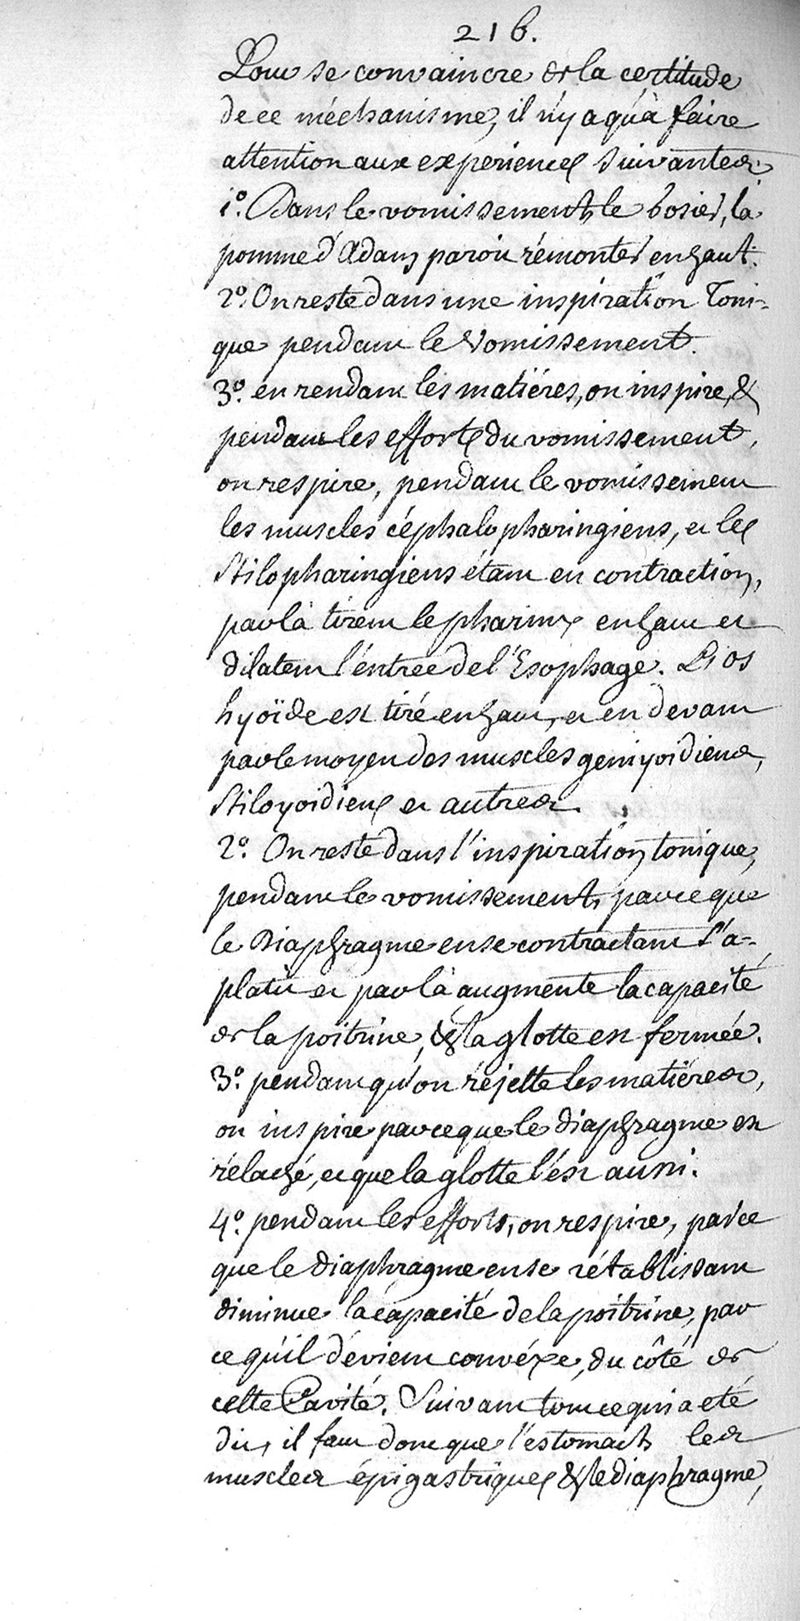 216.
Pour se convaincre de la certitude
de ce méchanisme, il n'y a qu'à faire
attention aux experiences suivantes.
1.° Dans le vomissement, le bosier, la
pomme d'Adam paroit rémonter en haut.
2.° On reste dans une inspiration Toni-
que pendant le Vomissement.
3.° en rendant les matiéres, on inspire, &
pendant les efforts du vomissement,
on respire, pendant le vomissement
les muscles céphalopharingiens, et les
Stilopharingiens étant en contraction,
par là tirent le pharinx en haut et
dilatent l'éntrée de l'Esophage. L'os
hyoïde est tiré en haut, et en devant
par le moyen des muscles geniyoidiens,
Stiloyoidiens et autres.
2.° On reste dans l'inspiration tonique,
pendant le vomissement, parce que
le Diaphragme en se contractant s'a-
platit et par là augmente la capacité
de la poitrine, & la glotte est fermée.
3.° pendant qu'on réjette les matiéres,
on inspire parce que le diaphragme est
rélaché, et que la glotte l'ést aussi.
4.° pendant les efforts, on respire, parce
que le diaphragme en se rétablissant
diminue la capacité de la poitrine, par
ce qu'il dévient convéxe, du côté de
cette Cavité. Suivant tout ce qui a eté
dit, il faut donc que l'estomach les
muscles épigastriques & le diaphragme,